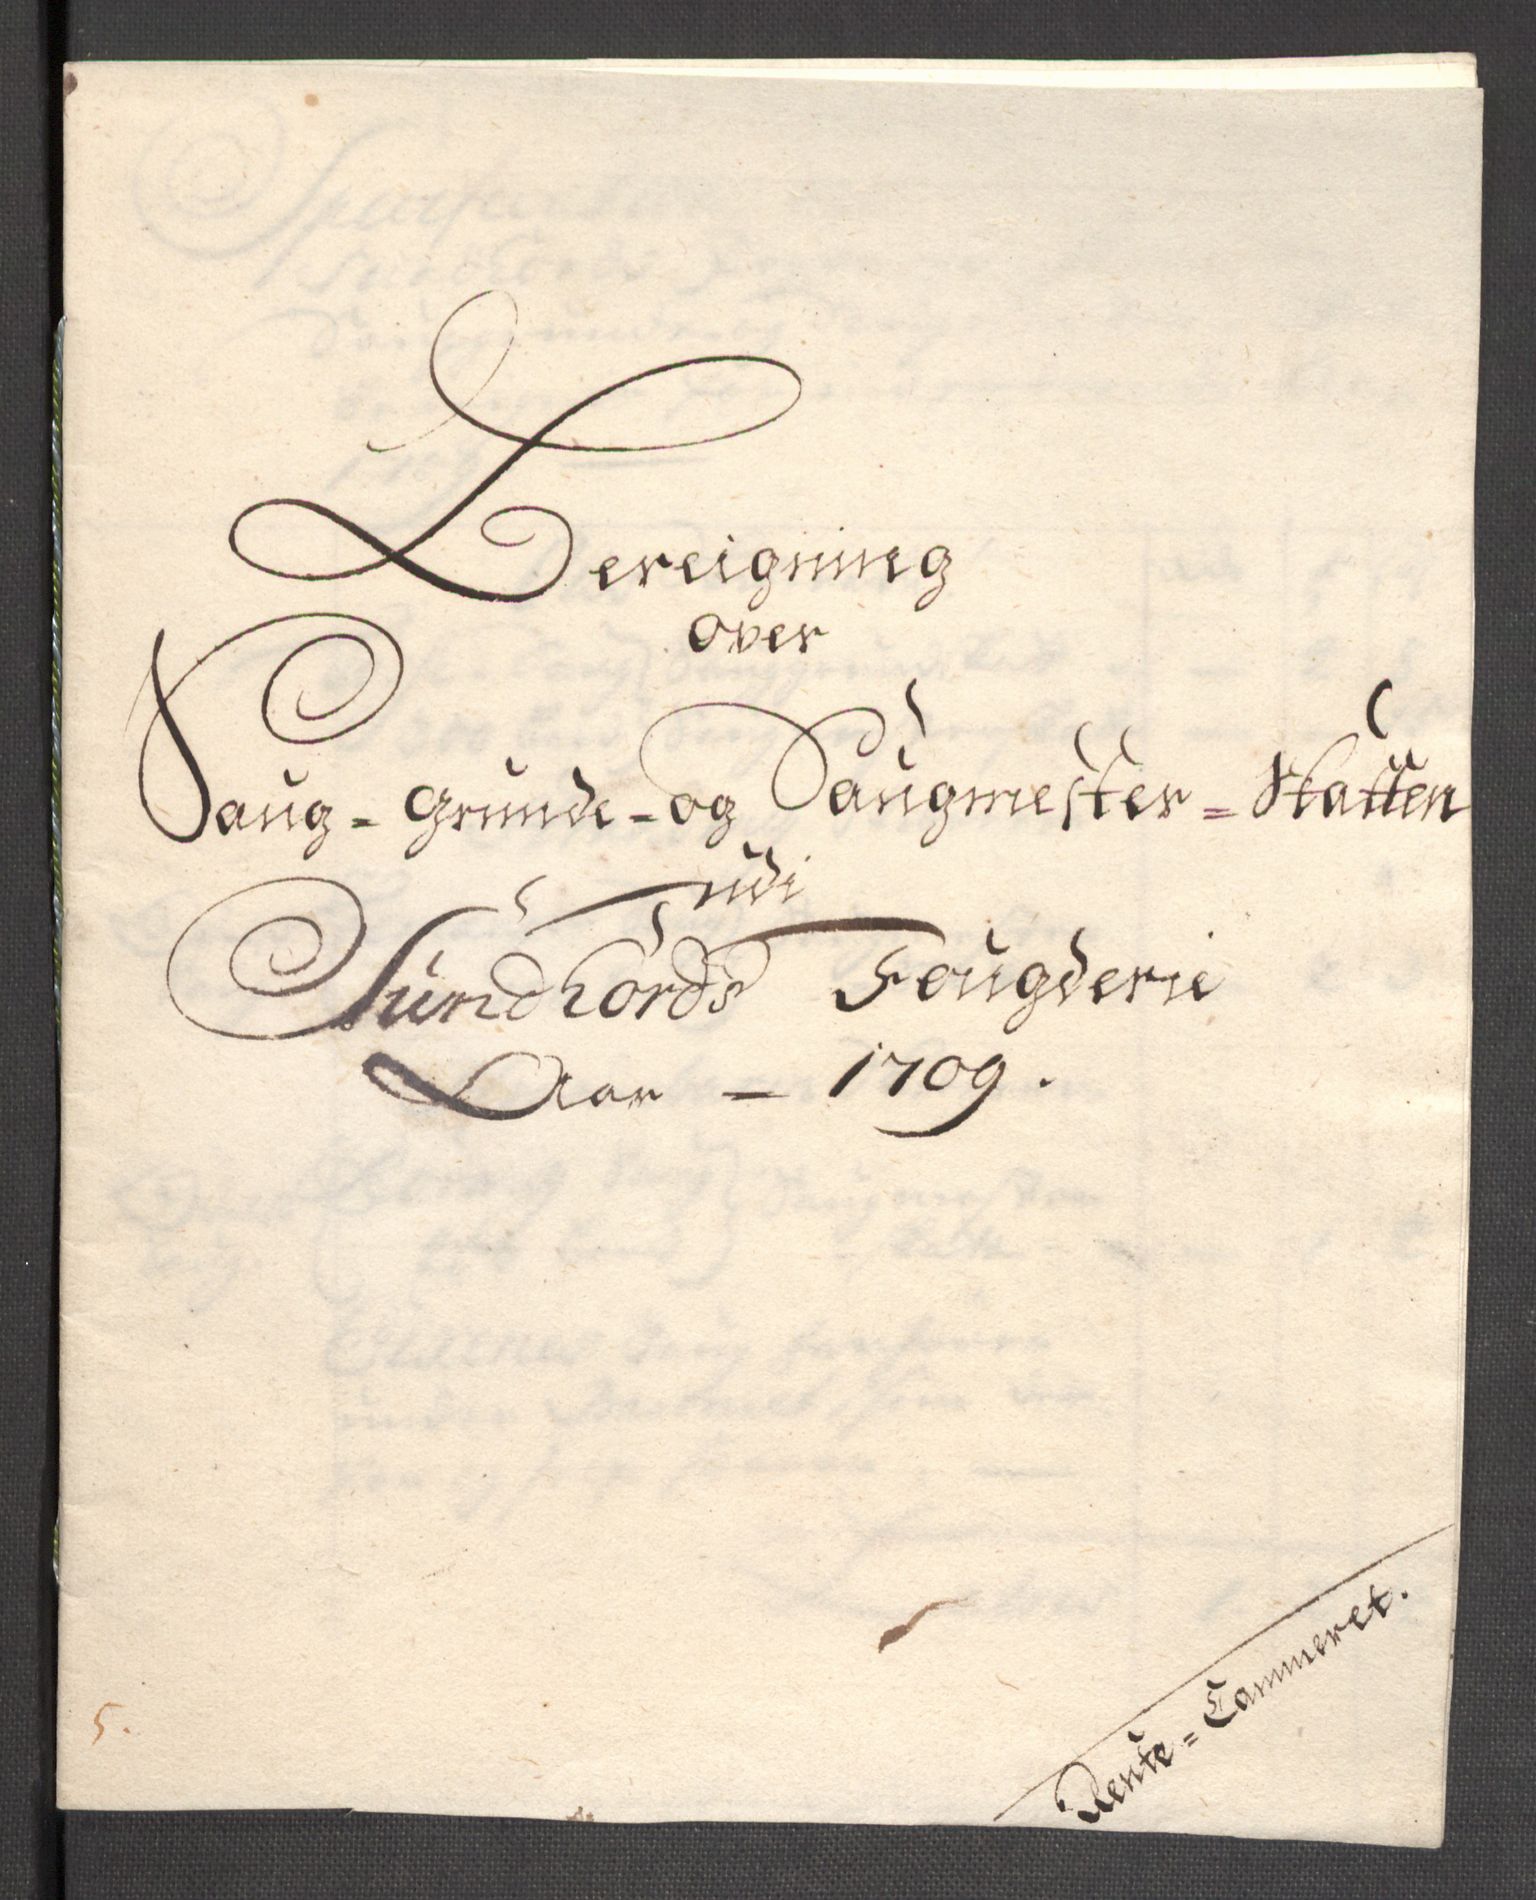 Bereigning
over
Saug = Grunde = og Saugmester = Skatten
udi
Sundhords Fougderie
Aar = 1709.
Rente = Cammeret.
5.